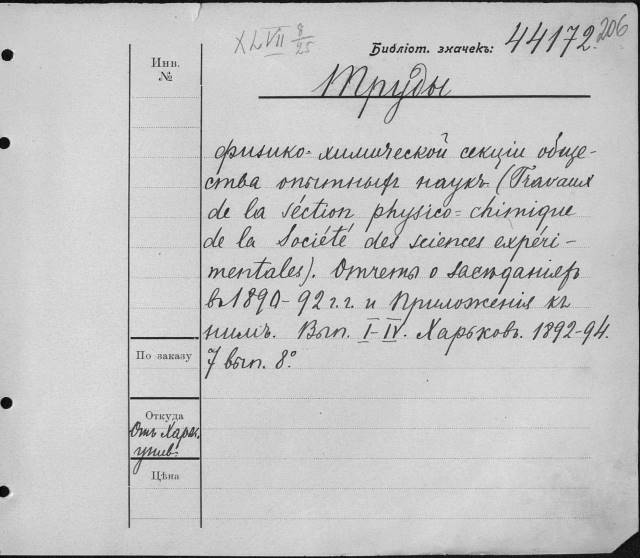 XLVII 8/25
Библіот. значекъ: 44172. 206
Инв.
№
Труды
физико-химической секціи обще-
ства опытныхъ наукъ (Travaux
de la séction physico=chimique
de la Société des sciences expéri-
mentales). Отчетъ о засѣданіяхъ
въ 1890-92 г.г. и Приложенія къ
нимъ. Вып. I-IV. Харьковъ. 1892-94.
По заказу
7 вып. 8°
Откуда
Отъ Харьк.
унив.
Цѣна